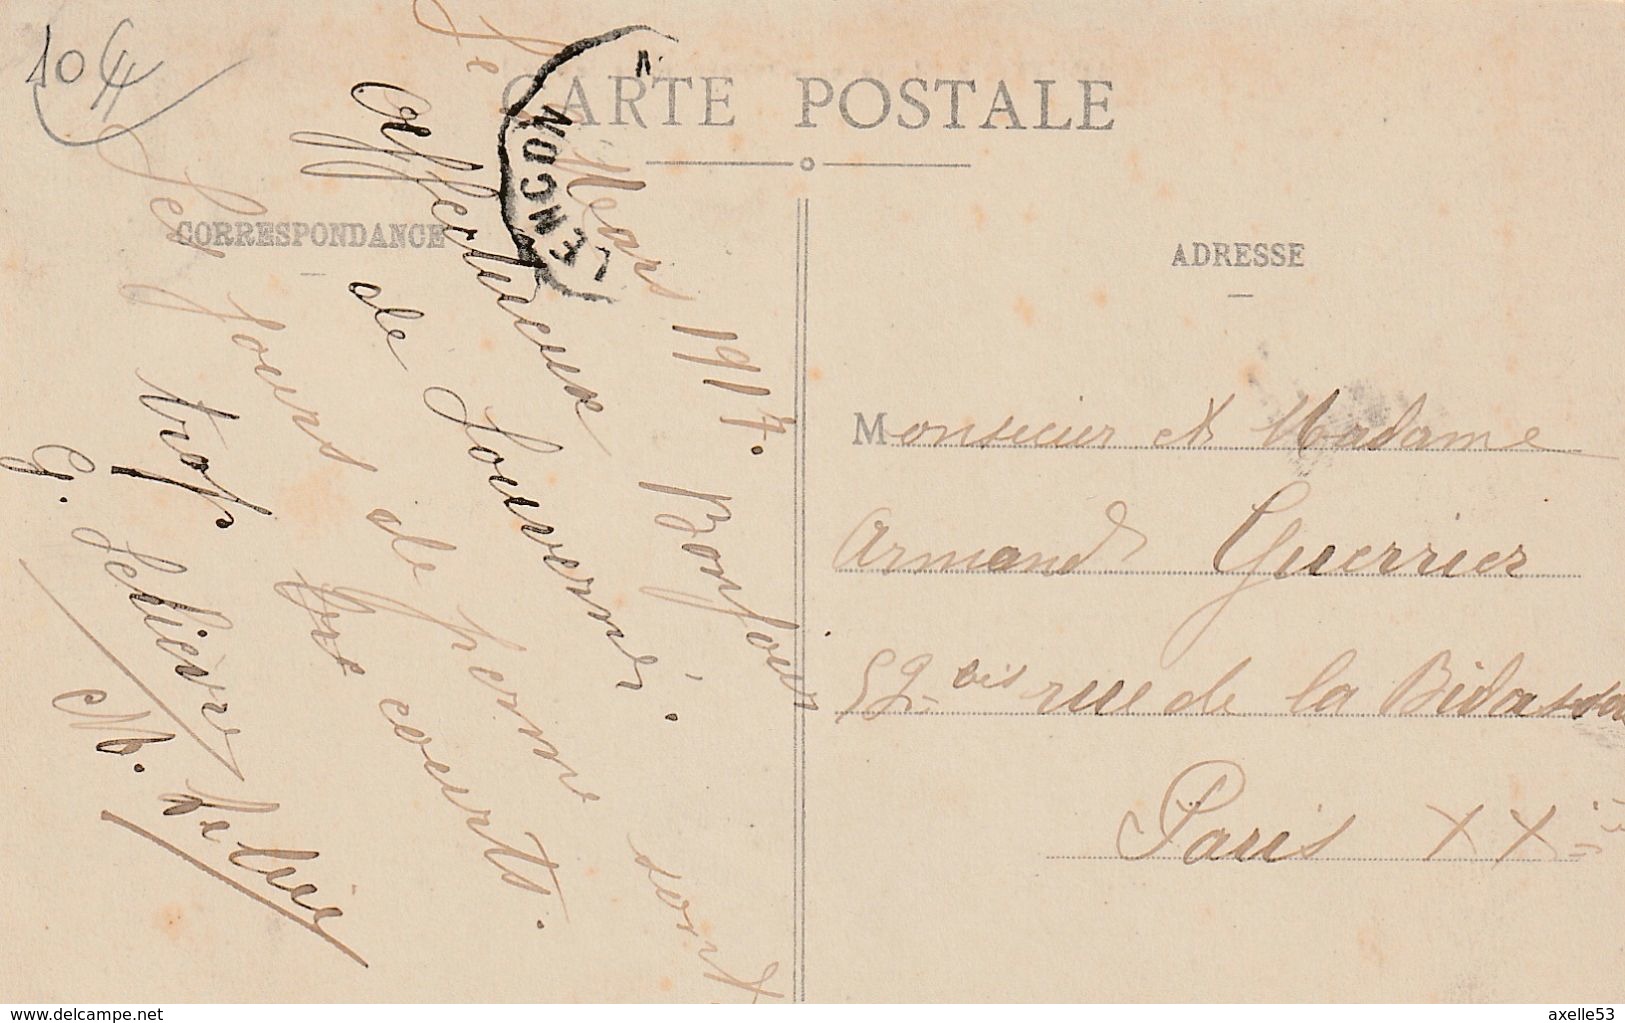 10 €
CARTE POSTALE
CORRESPONDANCE
ADRESSE
LENCON
Le Mars 1917. Bonjour
Affectueux
de Louverné.
Les jours de perme sont
trop courts.
G. Lelièvre
M. Lelièv
Monsieur et Madame
Armand Guerrier
52 bis rue de la Bidassoa
Paris XX
www.delcampe.net
axelle53